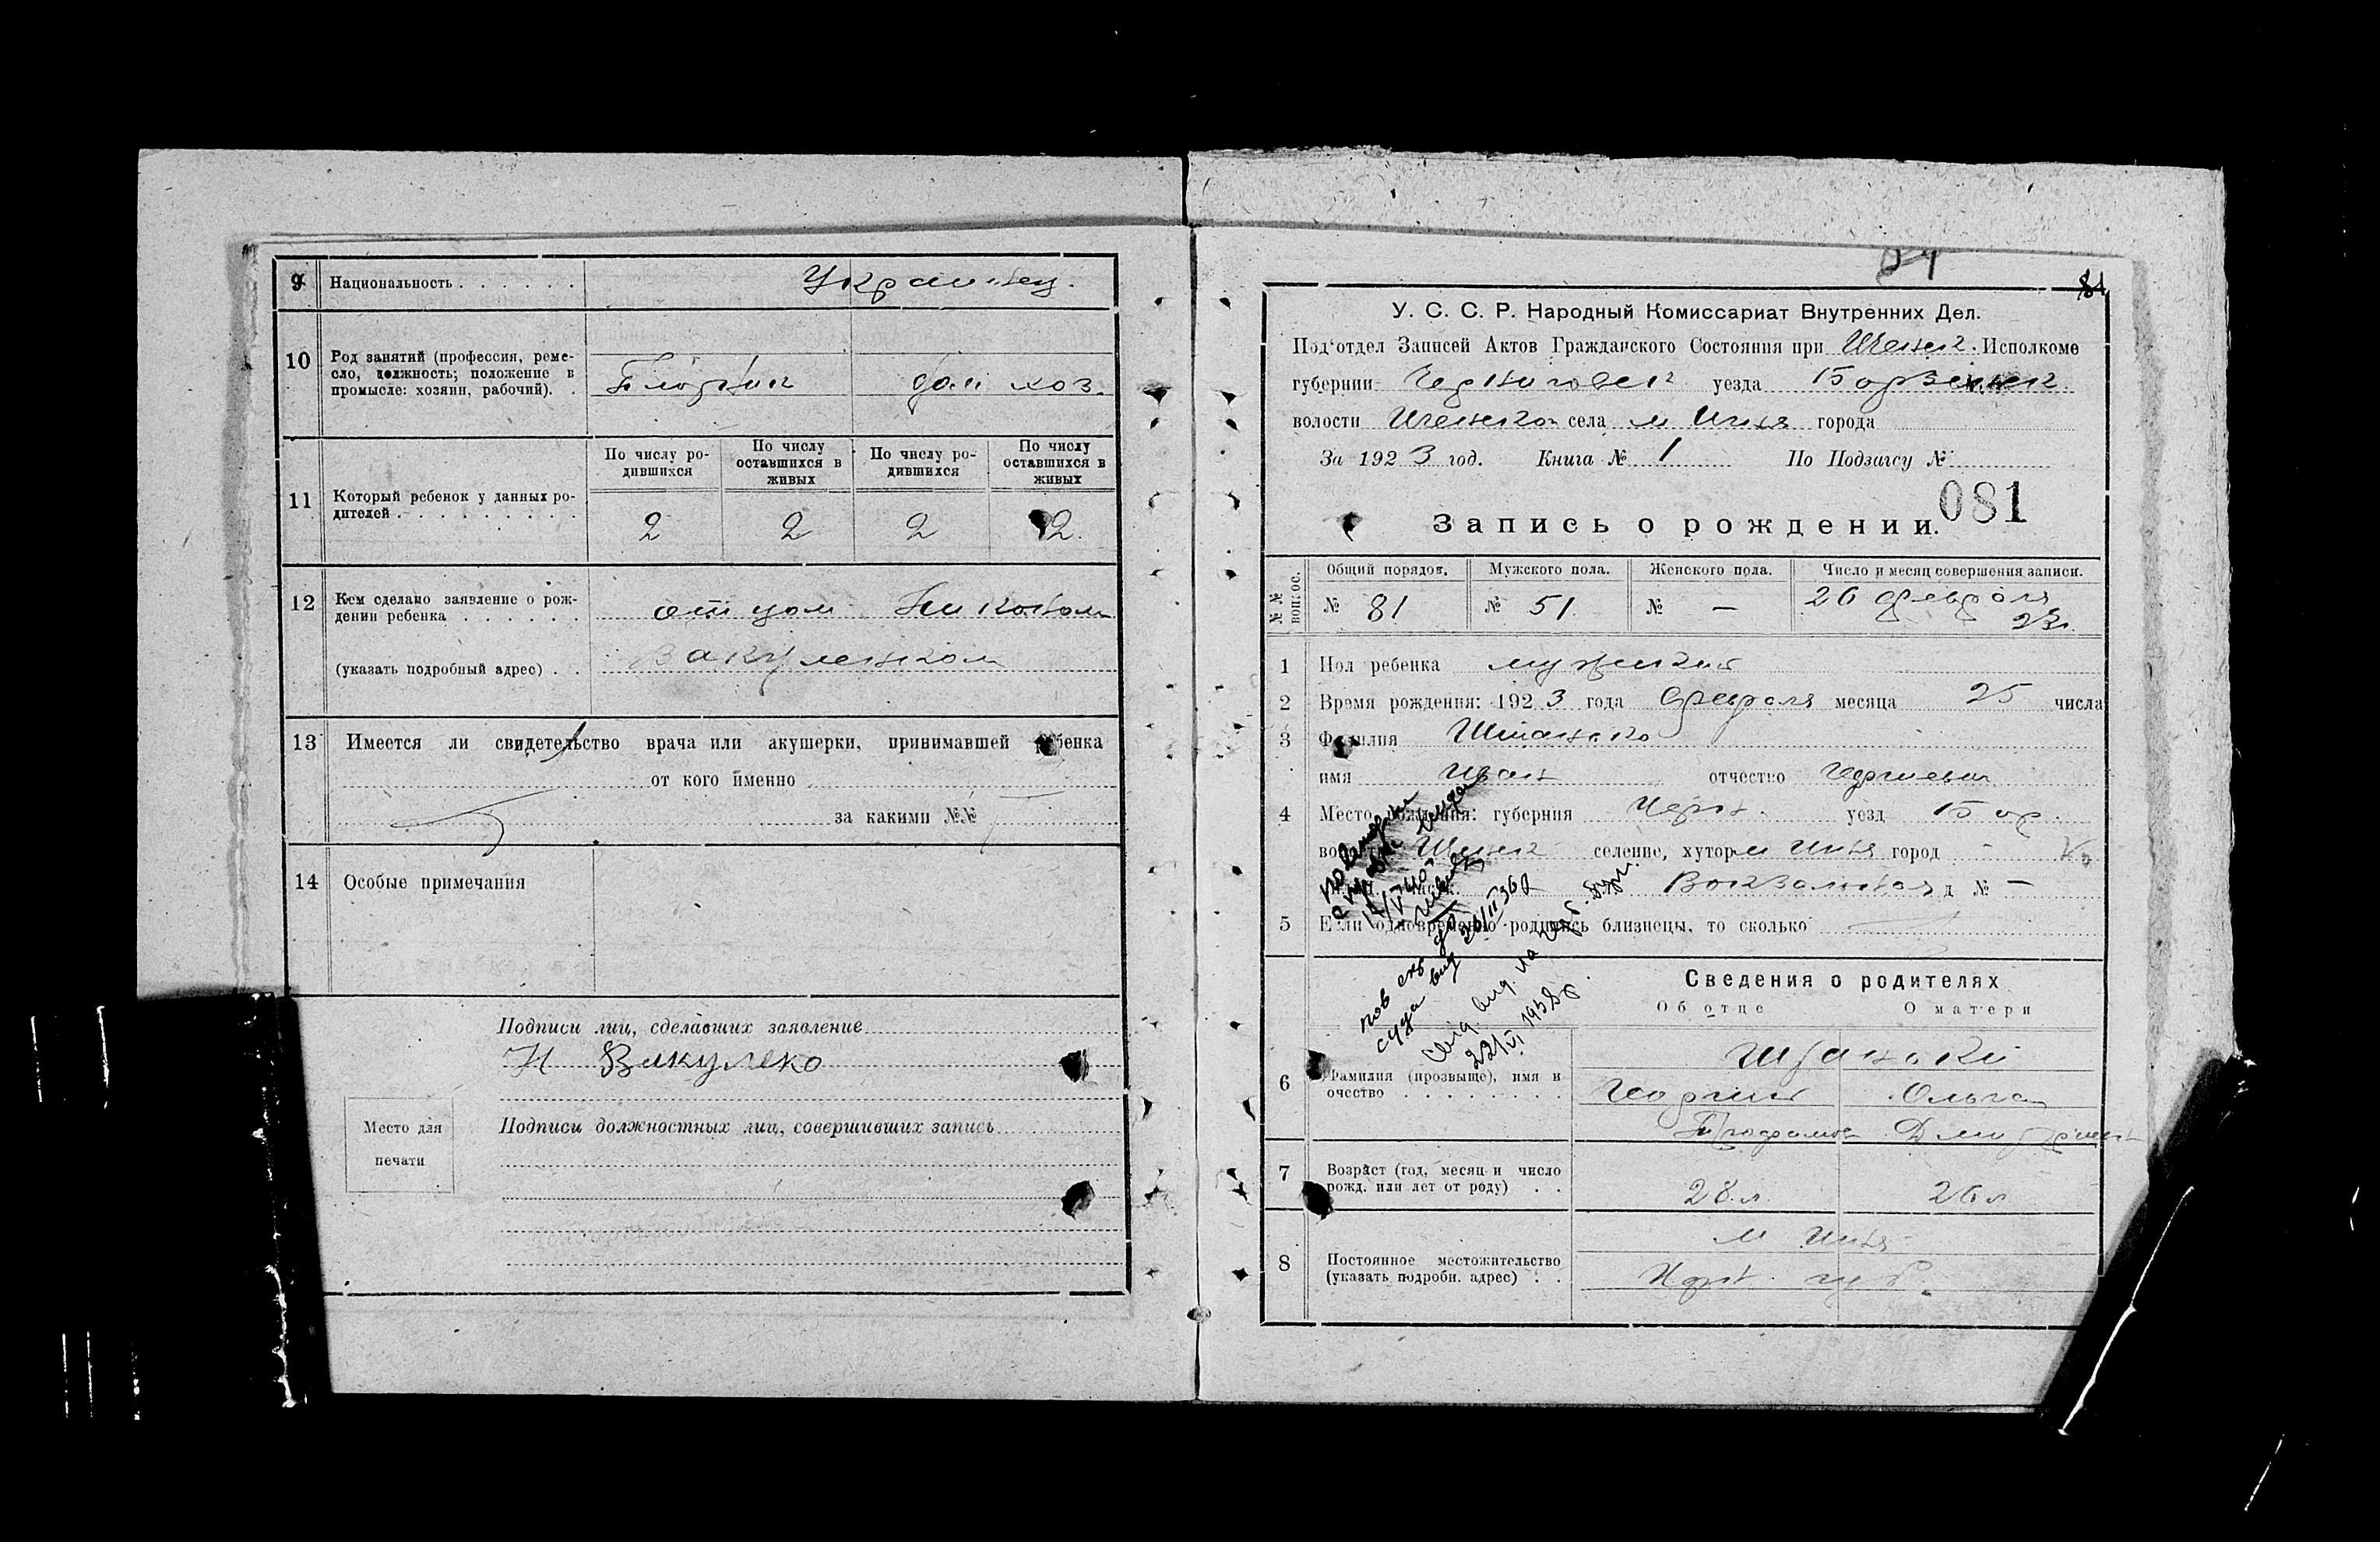 9 Национальность . . . . . . Украинец.
10 Род занятий (профессия, реме-
сло, должность; положение в
промысле: хозяин, рабочий). .
Плотник дом хоз.
11 Который ребенок у данных ро-
дителей . . . . . . . . .
По числу ро-
дившихся
По числу
оставшихся в
живых
По числу ро-
дившихся
По числу
оставшихся в
живых
2 2 2 2.
12 Кем сделано заявление о рож-
дении ребенка . . . . . . отцом
(указать подробный адрес) . . Вакуленком
13 Имеется ли свидетельство врача или акушерки, принимавшей ребенка
от кого именно
за какими №№
14 Особые примечания
Подписи лиц, сделавших заявление
Н Вакулеко
Место для
печати
Подписи должностных лиц, совершивших запись
81
У. С. С. Р. Народный Комиссариат Внутренних Дел.
Под'отдел Записей Актов Гражданского Состояния при Иченск. Исполкоме
губернии Черниговск уезда Борзенск.
волости Иченской села м Ичня города
За 1923 год. Книга № 1 По Подзагсу №
081
Запись о рождении.
№№ вопрос.
Общий порядов. Мужского пола. Женского пола. Число и месяц совершения записи.
№ 81 № 51. № — 26 февраля
23г.
1 Пол ребенка мужеский
2 Время рождения: 1923 года февраля месяца 25 числа
3 Фамилия
имя Иван отчество Георгиевич
4 Место рождения: губерния Черн. уезд Бор.
волость Иченск селение, хутор м Ичня город -
Вокзальная д № —
5 Если одновременно родились близнецы, то сколько
26/II 36р
22/VI 1938р.
Сведения о родителях
Об отце О матери
6 Фамилия (прозвыще), имя и
очество . . . . . . . .
Георгий Ольга
Дмитриевн
7 Возраст (год, месяц и число
рожд. или лет от роду) . .
28 л. 26 л
8 Постоянное местожительство
(указать подробн. адрес) . .
м Ичня
Черн. губ.